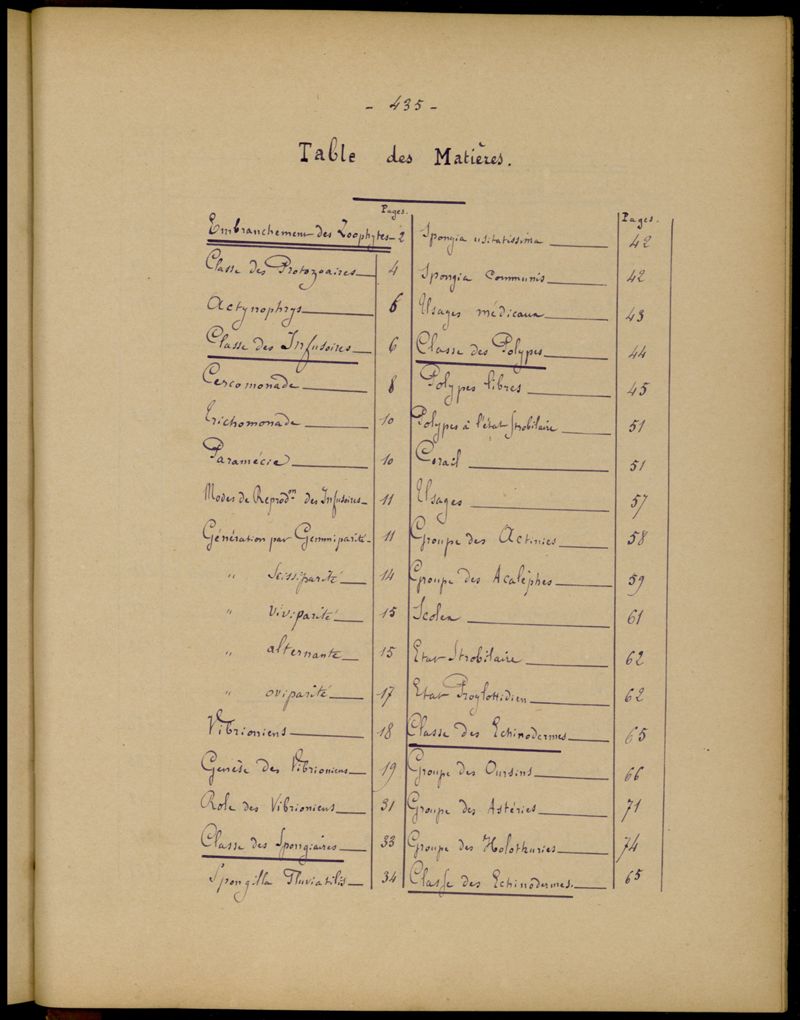 - 435 -
Table des Matières.
Pages.
Embranchement des Zoophytes 2
Classe des Protozoaires 4
Actynophrys 6
Classe des Infusoires 6
Cercomonade 8
Trichomonade 10
Paramécie 10
Modes de Reprodon des Infusoires 11
Génération par Gemmiparité 11
" Scissiparité 14
" Viviparité 15
" alternante 15
" oviparité 17
Vibrioniens 18
Genèse des Vibrioniens 19
Role des Vibrioniens 31
Classe des Spongiaires 33
Spongilla Fluviatilis 34
Pages.
Spongia usitatissima 42
Spongia Communis 42
Usages médicaux 43
Classe des Polypes 44
Polypes libres 45
Polypes à l'état Strobilaire 51
Corail 51
Usages 57
Groupe des Actinies 58
Groupe des Acalèphes 59
Scolex 61
Etat Strobilaire 62
Etat Proglottidien 62
Classe des Echinodermes 65
Groupe des Oursins 66
Groupe des Astéries 71
Groupe des Holothuries 74
Classe des Echinodermes. 65